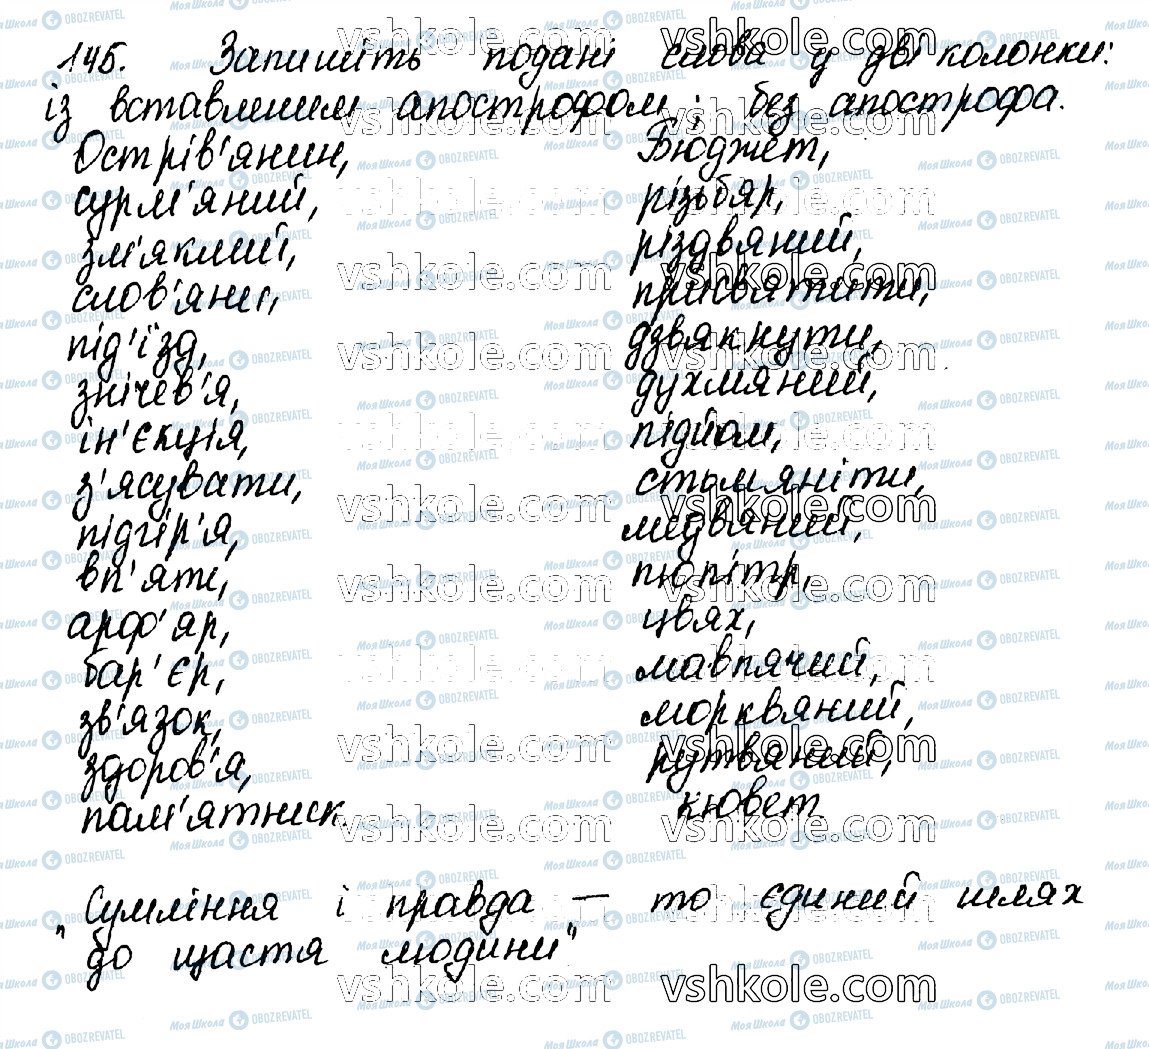 145. Запишіть подані слова у дві колонки:
із вставленим апострофом; без апострофа.
Острів'янин, Бюджет,
сурм'яний, різьбяр,
зм'яклий, різдвяний,
слов'яни, присвятити,
під'їзд, дзвякнути,
знічев'я, духмяний,
ін'єкція, підйом,
з'ясувати, стьмяніти,
підгір'я, медвяний,
вп'яти, пюпітр,
арф'яр, цвях,
бар'єр, мавпячий,
зв'язок, морквяний,
здоров'я, рутвяний,
пам'ятник кювет
"Сумління і правда – то єдиний шлях
до щастя людини"